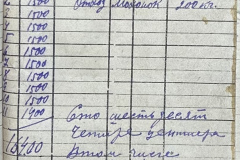 1500 Отход Мохонок 200 кг.
1500
1500
1500
1500
1500
1500
1500
1400
16400 Сто шестьдесят
четыре центнера
В том числе